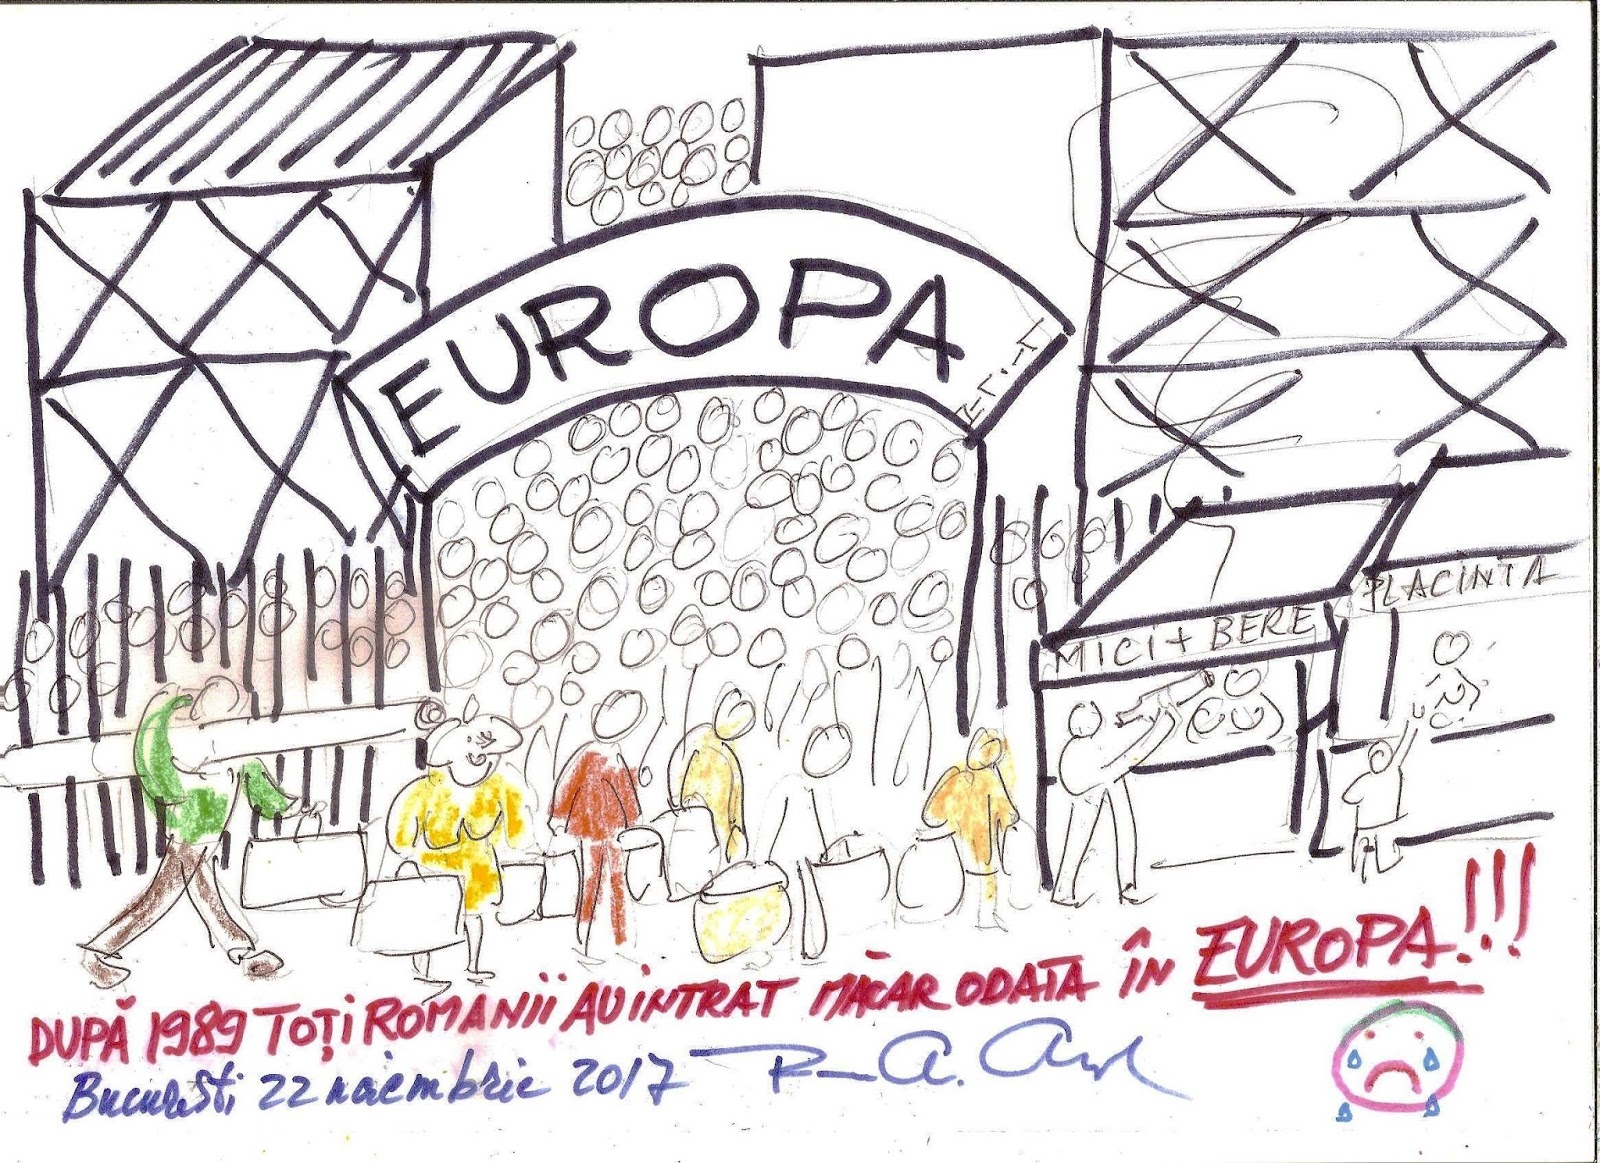 EUROPA
MICI + BERE
PLACINTA
DUPĂ 1989 TOȚI ROMANII AU INTRAT MĂCAR ODATA ÎN EUROPA!!!
București 22 noiembrie 2017